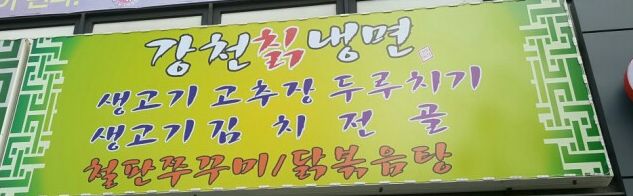 강천칡냉면
생고기 고추장 두루치기
생고기 김치전골
철판쭈꾸미/닭볶음탕